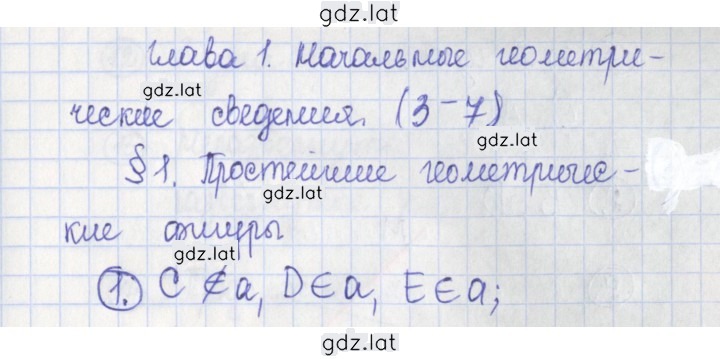 gdz.lat
Глава 1. Начальные геометри-
gdz.lat
ческие сведения. (3-7)
gdz.lat
§ 1. Простейшие геометричес-
gdz.lat
кие фигуры
gdz.lat
1. C ∉ a, D ∈ a, E ∈ a;
gdz.lat